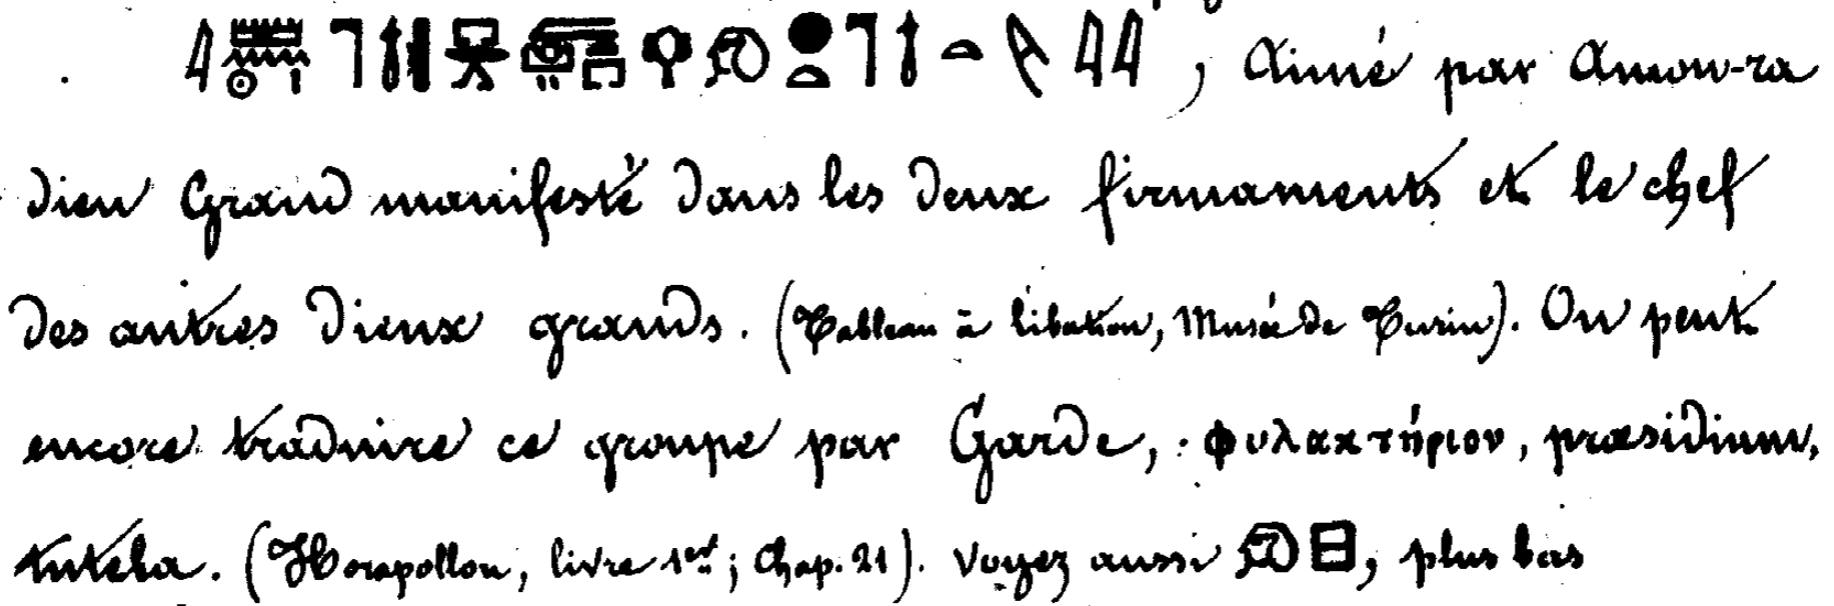 , Aimé par Amon-ra
Dieu Grand manifesté dans les deux firmaments et le chef
des autres Dieux grands. (Tableau à libation, Musée de Turin). On peut
encore traduire ce groupe par Garde, φυλακτήριον, præsidium,
tutela. (Horapollon, livre 1er; Chap. 21). Voyez aussi , plus bas